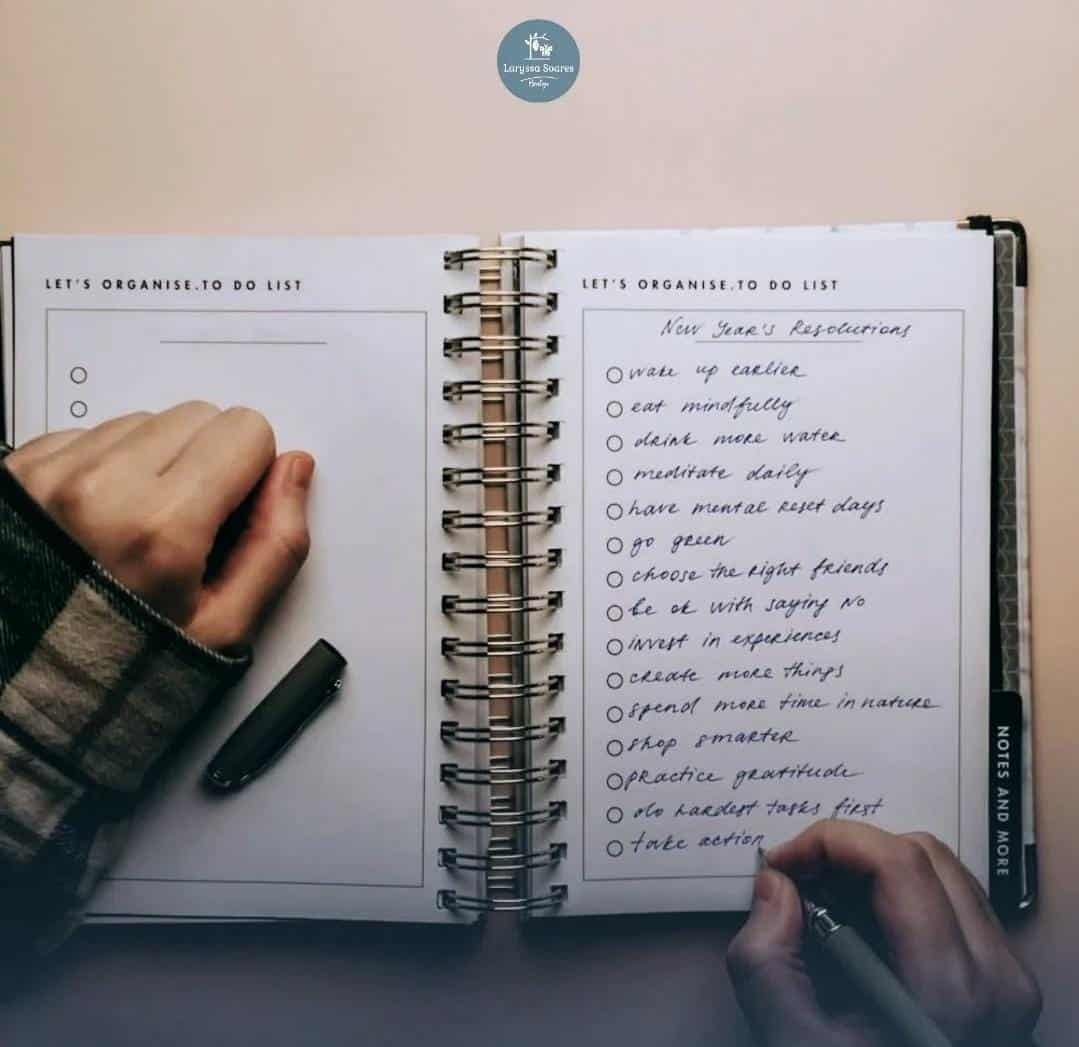 Laryssa Soares
LET'S ORGANISE.TO DO LIST
LET'S ORGANISE.TO DO LIST
New Year's Resolutions
wake up earlier
eat mindfully
drink more water
meditate daily
have mental reset days
go green
choose the right friends
be ok with saying NO
invest in experiences
create more things
spend more time in nature
shop smarter
practice gratitude
do hardest tasks first
take action
NOTES AND MORE